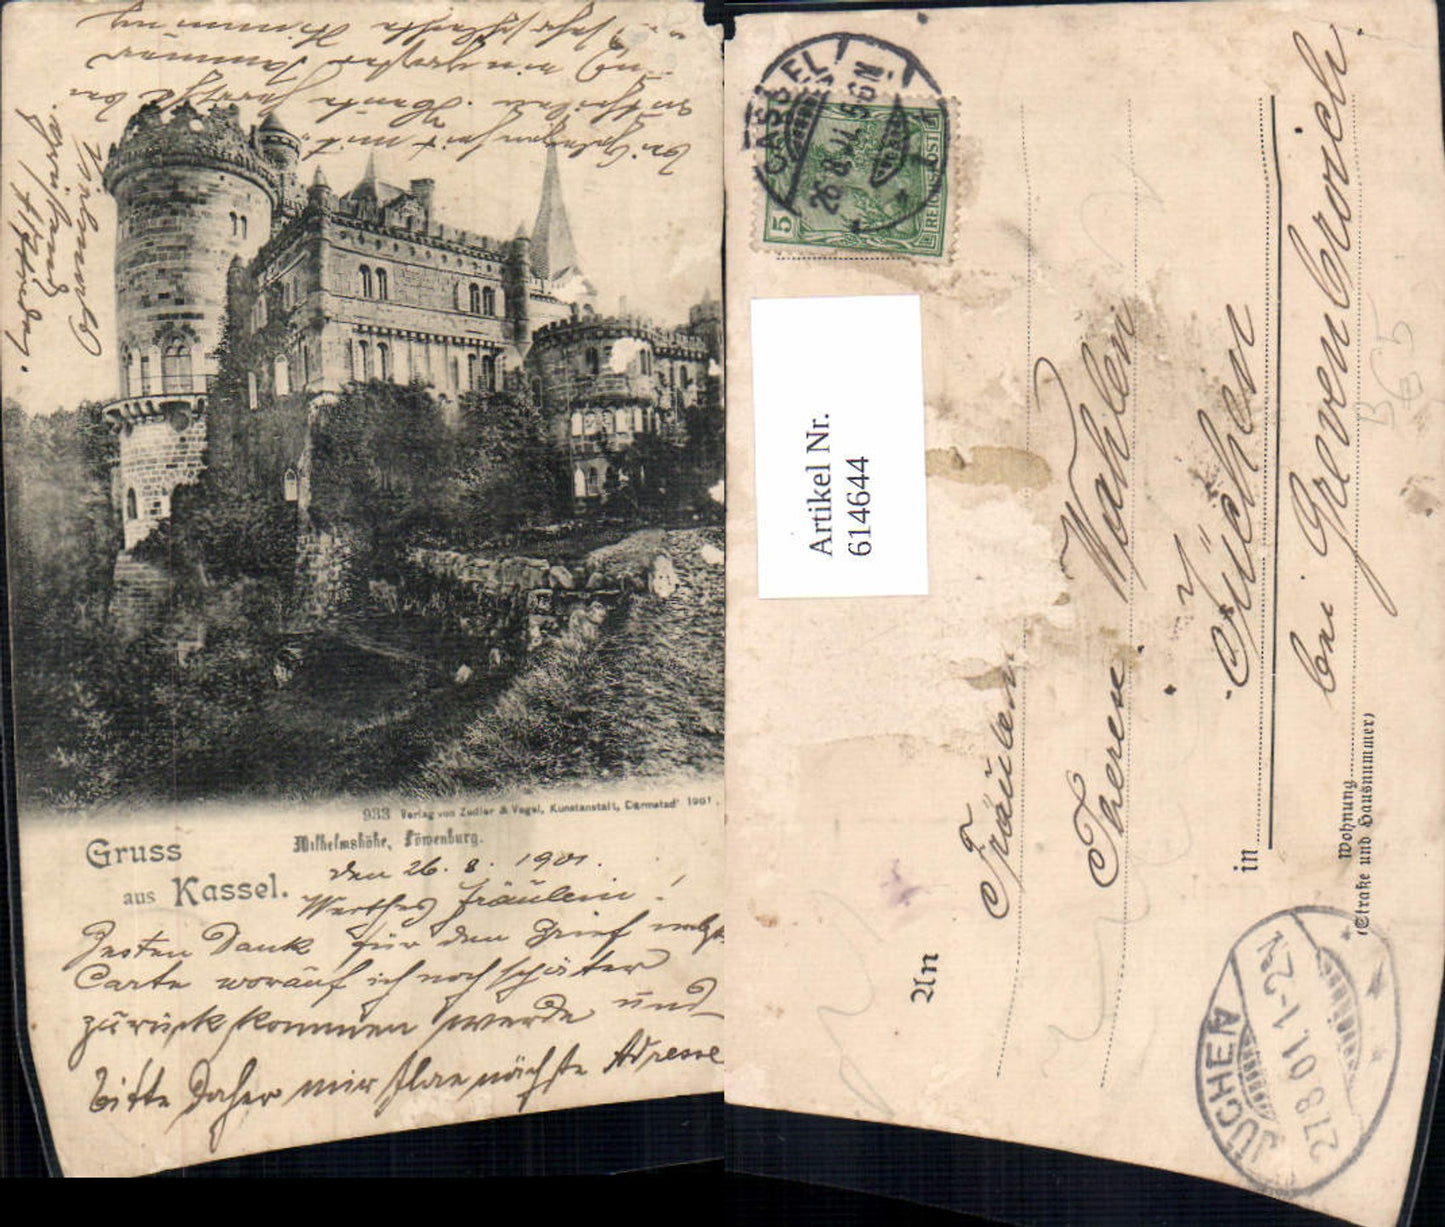 933 Verlag von Zedler & Vogel, Kunstanstalt, Darmstadt 1901.
Gruss
aus Kassel.
Wilhelmshöhe, Löwenburg.
den 26. 8. 1901.
Werthes Fräulein!
Besten Dank für den Brief nebst
Carte worauf ich noch später
zurückkommen werde und
bitte Daher mir Ihre nächste Adresse
CASSEL
26.8.01. 5-6 N
5
REICHSPOST
Artikel Nr.
614644
An
Fräulein
Therese Wahlen
in Jüchen
bei Grevenbroich
Wohnung
(Straße und Hausnummer)
JÜCHEN
27.8.01. 1-2 N
B65